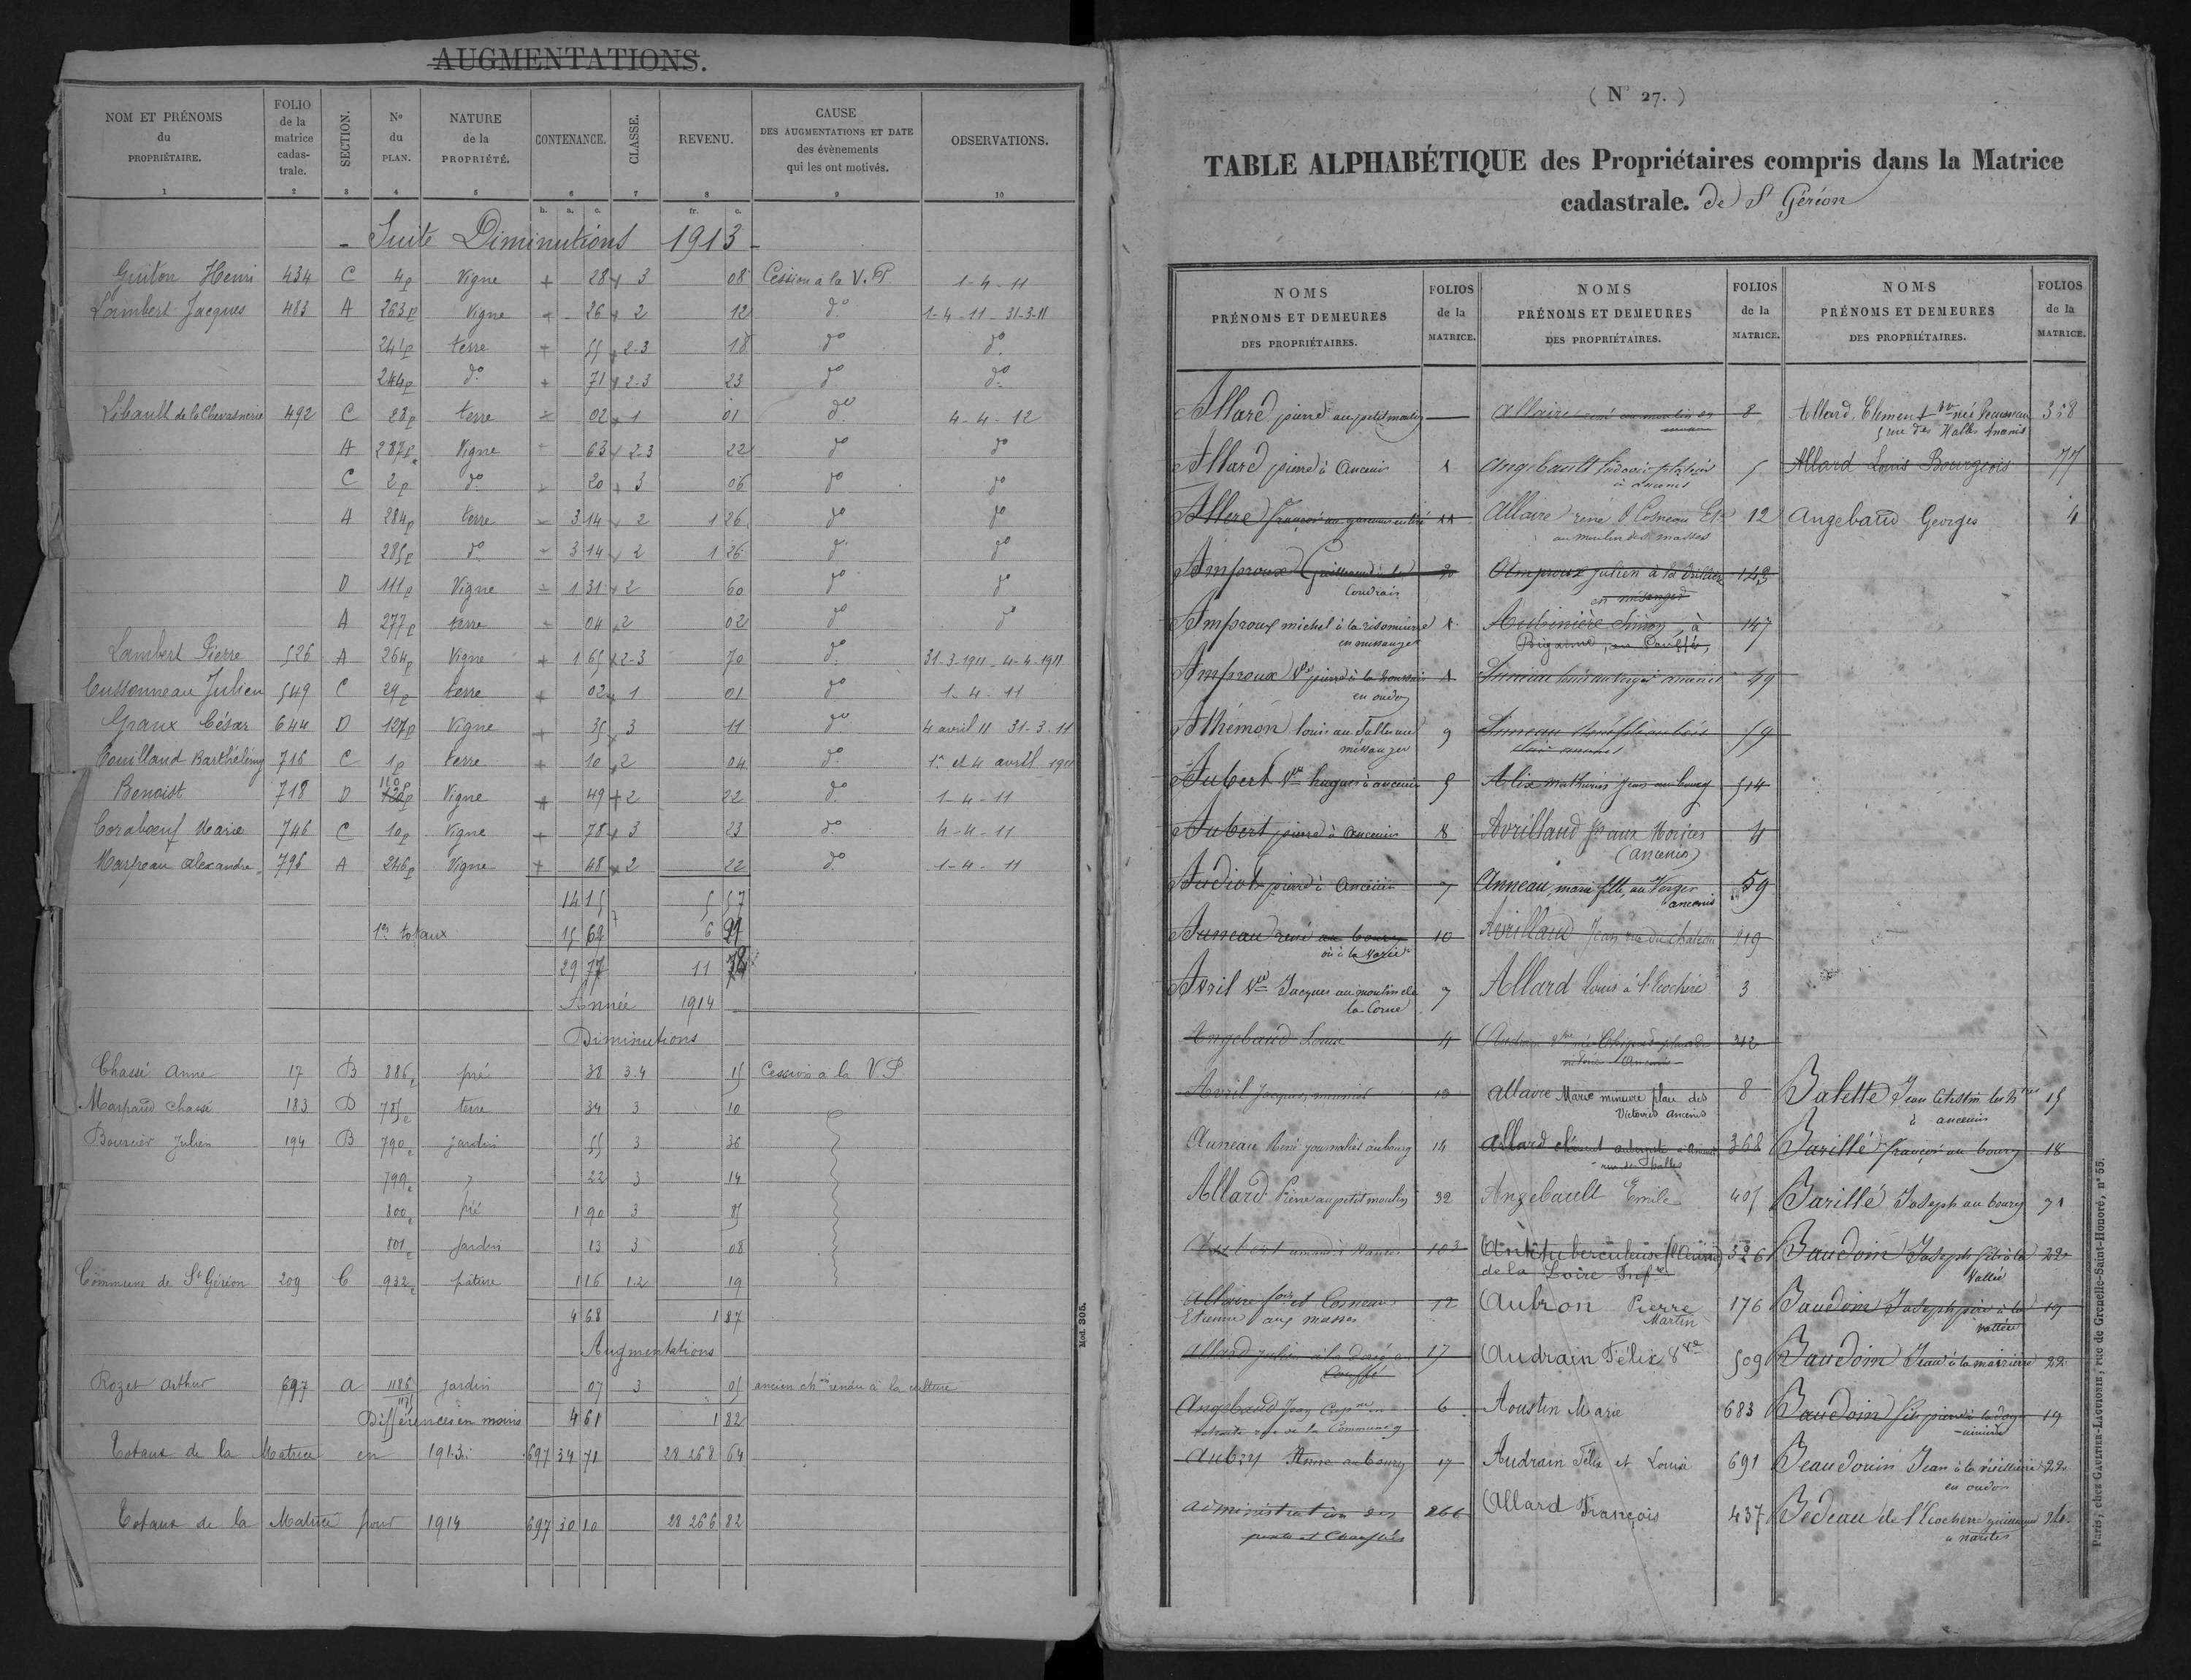 AUGMENTATIONS.
NOM ET PRÉNOMS du PROPRIÉTAIRE. FOLIO de la matrice cadas- trale. SECTION. No du PLAN. NATURE de la PROPRIÉTÉ. CONTENANCE. CLASSE. REVENU. CAUSE DES AUGMENTATIONS ET DATE des évènements qui les ont motivés. OBSERVATIONS.
1 2 3 4 5 6 7 8 9 10
h. a. c. fr. c.
- Suite Diminutions 1913 -
Guiton Henri 434 C 4p Vigne + 28 + 3 08 Cession à la V.P 1-4-11
Lambert Jacques 483 A 263p Vigne 26 + 2 12 do 1-4-11 - 31-3-11
241p terre 55 + 2-3 18 do do
244p do + 71 + 2-3 23 do do
de la Chevasnerie 492 C 28p terre 02 + 1 01 do 4-4-12
A 287p Vigne 63 2-3 22 do do
C 2p do 20 + 3 06 do do
A 284p terre 3 14 2 1 26 do do
285p do 3 14 2 1 26 do do
D 111p Vigne 1 31 2 60 do do
A 277p terre 04 2 02 do do
Lambert Pierre 526 A 264p Vigne + 1 65 2-3 70 do 31-3-1911 - 4-4-1911
Cussonneau Julien 549 C 29p terre + 02 1 01 do 1-4-11
Graux César 644 D 127p Vigne + 35 3 11 do 4 avril 11 31-3-11
Couilland Barthélémy 716 C 1p terre + 10 2 04 do 1er et 4 avril 1911
Benoist 718 D 120p Vigne + 49 + 2 22 do 1-4-11
Corabœuf Marie 746 C 10p Vigne + 78 3 23 do 4-4-11
Marpeau Alexandre 796 A 246p Vigne + 48 2 22 do 1-4-11
14 15 5 57
1er totaux 15 62 6 21
29 77 11 78
Année 1914
Diminutions
Chassé Anne 17 B 886p pré 38 3.4 15 Cession à la V P
Marpaud Chassé 183 D 785p terre 34 3 10
Boursier Julien 194 B 790p jardin 55 3 36
799p 22 3 14
800p pré 1 90 3 85
801p jardin 13 3 08
Commune de St Géréon 209 C 932p pâture 1 16 1.2 19
4 68 1 87
Augmentations
Rozet Arthur 697 A 1186 jardin 07 3 05 ancien chin rendu à la culture
Différences en moins 4 61 1 82
Totaux de la Matrice en 1913: 697 34 71 28 268 64
Totaux de la Matrice pour 1914 697 30 10 28 266 82
Mod. 305.
( No 27. )
TABLE ALPHABÉTIQUE des Propriétaires compris dans la Matrice
cadastrale. de St Géréon
NOMS PRÉNOMS ET DEMEURES DES PROPRIÉTAIRES. FOLIOS de la MATRICE.
Allard pierre au petit moulin
Allard pierre à Ancenis 1
Allere françois
Amproux Guillaume à la Coudrais 20
Amproux michel en missanger 1
Amproux Ve pierre à la en oudon 1
Athémon louis au mésanger 9
Aubert Ve hugues à ancenis 5
Aubert, pierre à Ancenis 8
Audiot pierre à Ancenis 7
Auneau réné au bourg 10
ou à la
Avril Ve Jacques au moulin de la Corne 7
Angebaud Louis 4
Avril Jacques, meunier 10
Auneau René journalier au bourg 14
Allard Pierre au petit moulin 32
Aubert amand à Nantes 103
Allaire et Cosneau 12
Etienne aux masses
Allard julien à la en Couffé 17
Angebaud Jean 6
rue de la Commune
Aubry Anne au bourg 17
Administration des 266
ponts et Chaussées
NOMS PRÉNOMS ET DEMEURES DES PROPRIÉTAIRES. FOLIOS de la MATRICE.
Allaire réné au moulin 8
Angebault Ludovic à Ancenis 5
Allaire rene & Cosneau Ete 12
au moulin des masses
Amproux julien à la 143
en mésanger
Aubinière à 147
en Couffé
Auneau ancenis 49
Auneau 59
Alix mathurin Jean au bourg 514
Avrilland Jeanne 4
(Ancenis)
Anneau, marie fille, au Verger ancenis 59
Avrilland Jean, rue du chateau 219
Allard Louis à l'Ecochère 3
212
Allaire Marie mineure place des Victoires Ancenis 8
Allard clément aubergiste à Ancenis rue des halles 368
Angebault Emile 405
Antituberculeuse (l'Œuvre) 526
de la Loire Infre
Aubron Pierre Martin 176
Audrain Félix Vve 509
Aoustin Marie 683
Audrain Félix et Louis 691
Allard François 437
NOMS PRÉNOMS ET DEMEURES DES PROPRIÉTAIRES. FOLIOS de la MATRICE.
Allard, Clement Ve née 368
5 rue des Halles Ancenis
Allard Louis Bourgeois 77
Angebaud Georges 4
Balette Jean Célestin les hers 15
à ancenis
Barillé françois au bourg 18
Barillé Joseph au bourg 71
Baudoin Joseph fils à la Vallée 22
Baudoin Joseph père à la vallée 19
Baudoin Jean à la 22
Baudoin fils pierre à la 19
Beaudouin Jean à la 22
en oudon
Bedeau de l'Ecochere guillaume 26
a nantes
Paris, chez GAULTIER-LAGUIONIE, rue de Grenelle-Saint-Honoré, n° 55.